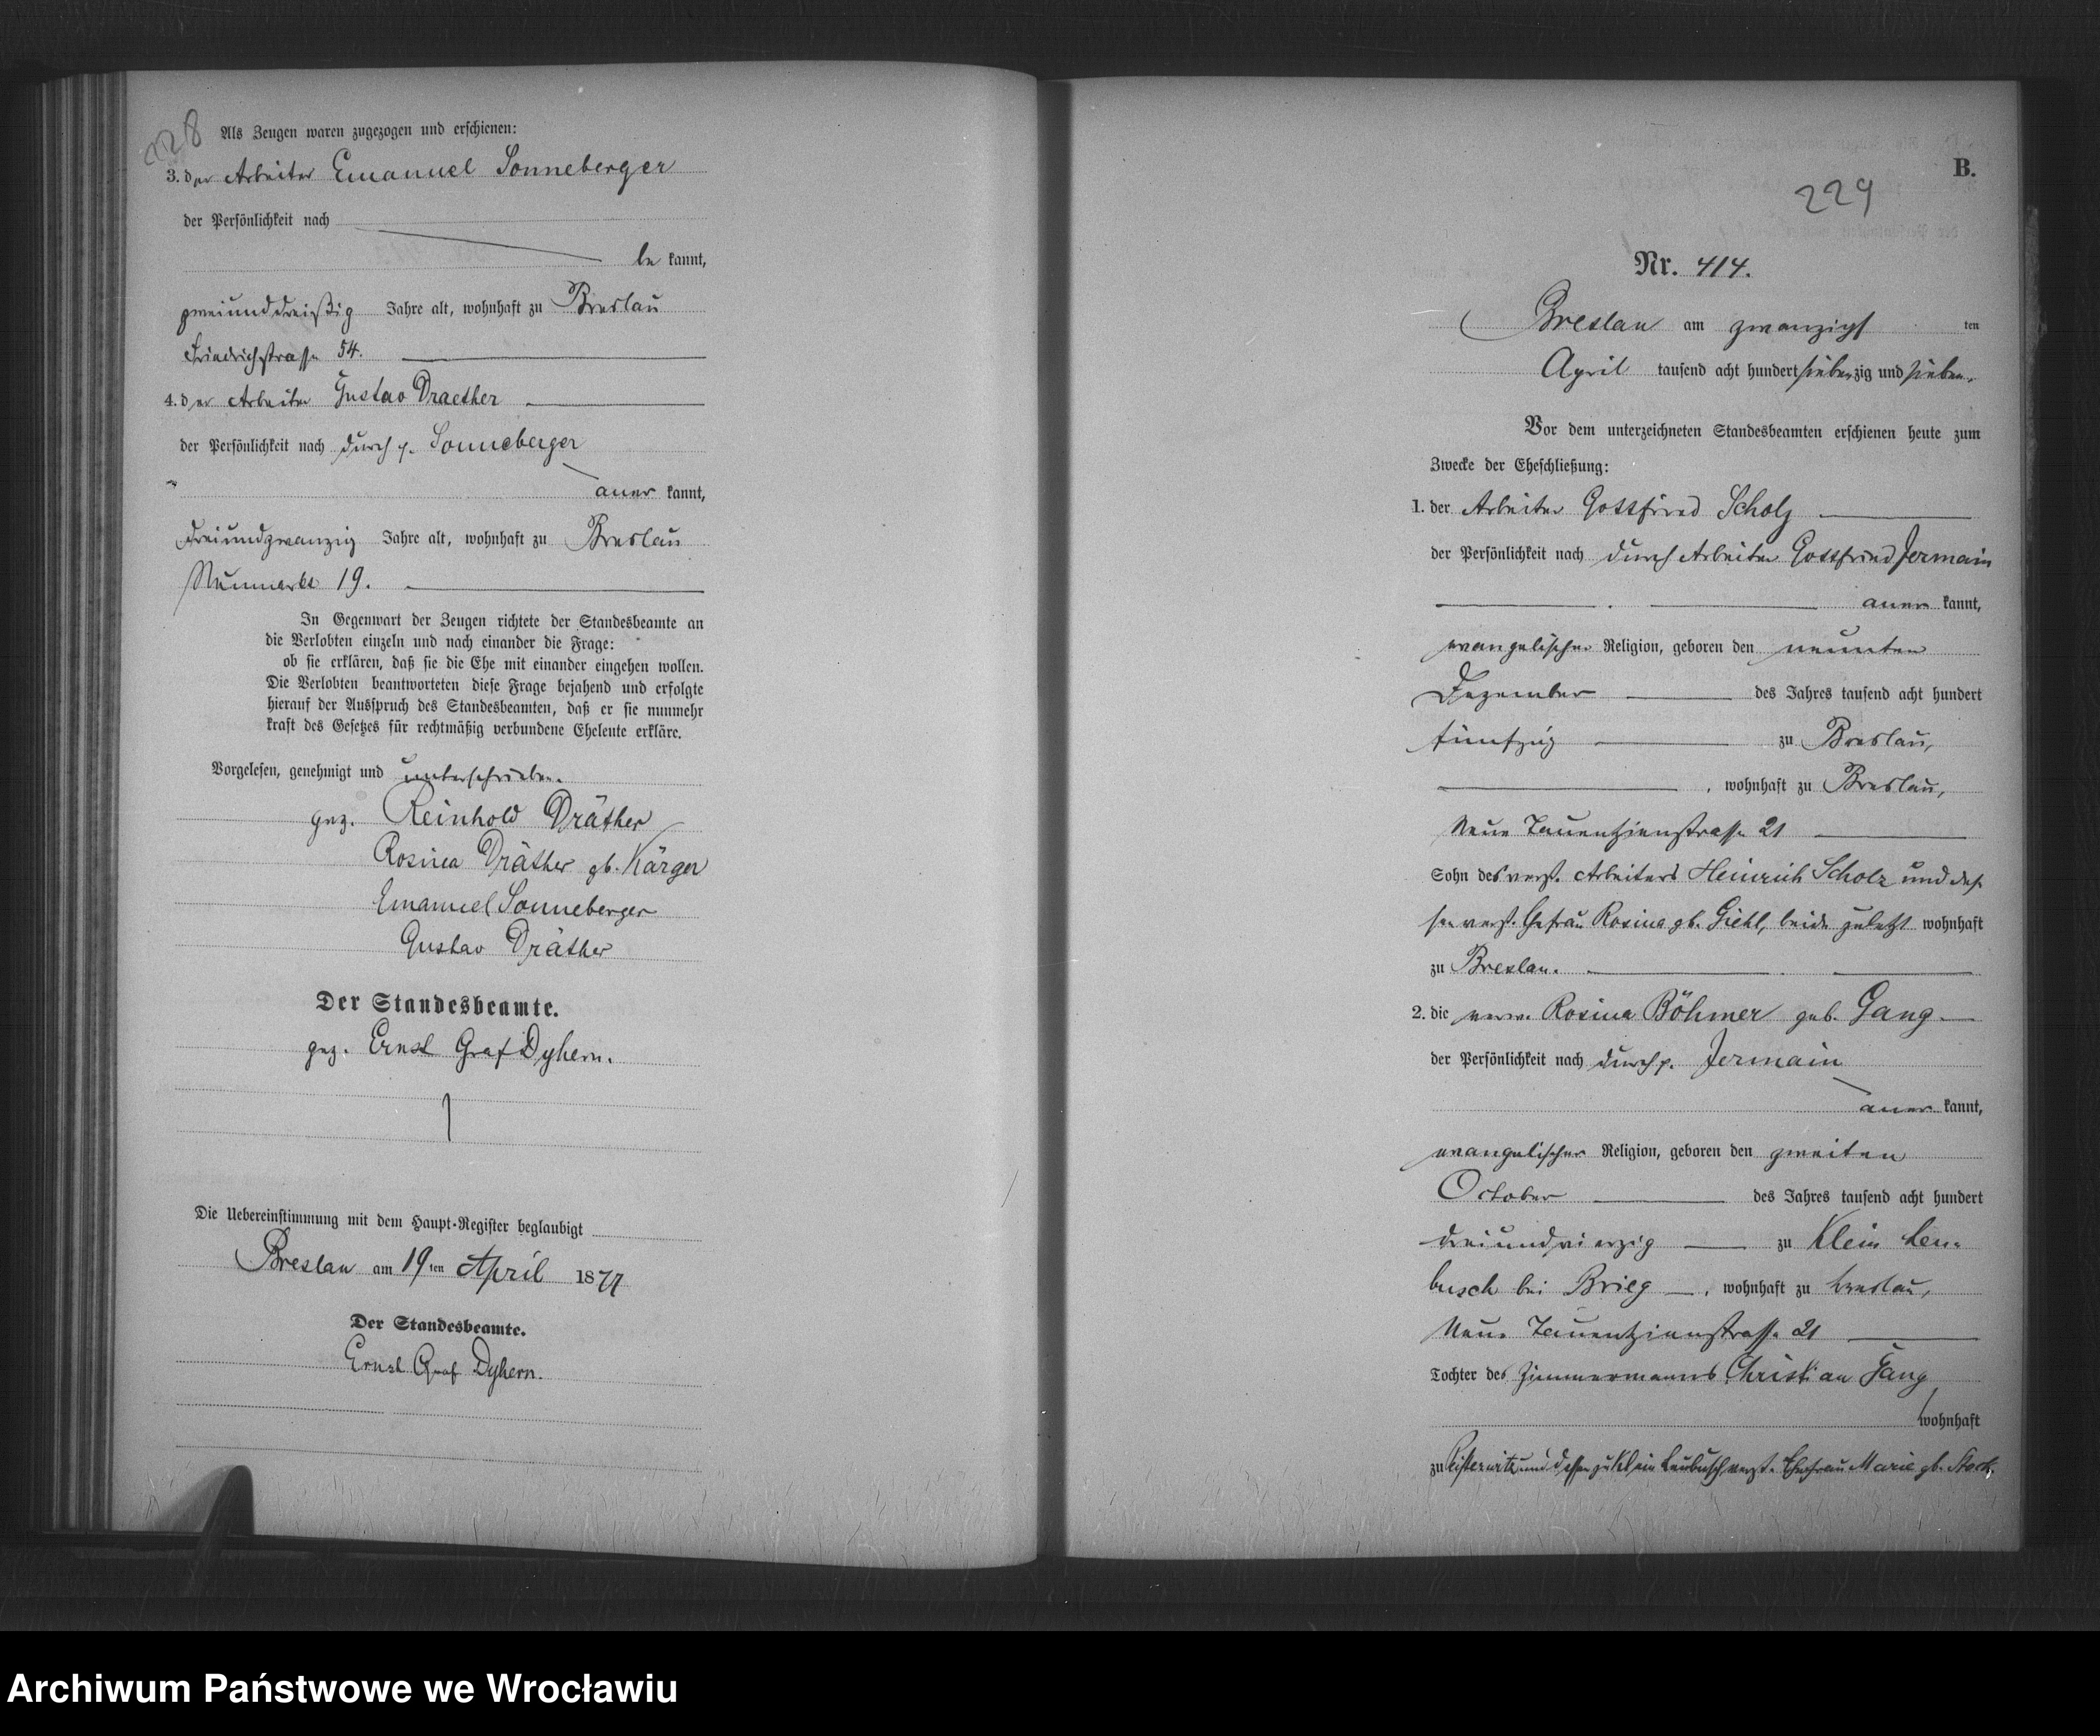 228
Als Zeugen waren zugezogen und erschienen:
3. der Arbeiter Emanuel Sonneberger
der Persönlichkeit nach
be kannt,
zweiunddreißig Jahre alt, wohnhaft zu Breslau
Friedrichstrasse 54.
4. der Arbeiter Gustav Draether
der Persönlichkeit nach durch p. Sonneberger
aner kannt,
dreiundzwanzig Jahre alt, wohnhaft zu Breslau
Neumarkt 19.
In Gegenwart der Zeugen richtete der Standesbeamte an
die Verlobten einzeln und nach einander die Frage:
ob sie erklären, daß sie die Ehe mit einander eingehen wollen.
Die Verlobten beantworteten diese Frage bejahend und erfolgte
hierauf der Ausspruch des Standesbeamten, daß er sie nunmehr
kraft des Gesetzes für rechtmäßig verbundene Eheleute erkläre.
Vorgelesen, genehmigt und unterschrieben.
gez. Reinhold Dräther
Rosina Dräther gb. Kärger
Emanuel Sonneberger
Gustav Dräther
Der Standesbeamte.
gez. Ernst Graf Dyhern.
Die Uebereinstimmung mit dem Haupt-Register beglaubigt
Breslau am 19ten April 1877
Der Standesbeamte.
Ernst Graf Dyhern.
B.
229
Nr. 414.
Breslau am zwanzigs ten
April tausend acht hundert siebenzig und sieben.
Vor dem unterzeichneten Standesbeamten erschienen heute zum
Zwecke der Eheschließung:
1. der Arbeiter Gottfried Scholz
der Persönlichkeit nach durch Arbeiter Gottfried Jermain
aner kannt,
evangelischer Religion, geboren den neunten
Dezember des Jahres tausend acht hundert
fünfzig zu Breslau,
, wohnhaft zu Breslau,
Neue Tauentzienstrasse 21
Sohn des verst. Arbeiters Heinrich Scholz und des-
sen verst. Ehefrau Rosina gb. Giehl, beide zuletzt wohnhaft
zu Breslau.
2. die verw. Rosina Böhmer geb. Gang
der Persönlichkeit nach durch p. Jermain
aner kannt,
evangelischer Religion, geboren den zweiten
October des Jahres tausend acht hundert
dreiundvierzig zu Klein Leu-
busch bei Brieg, wohnhaft zu Breslau,
Neue Tauentzienstrasse 21
Tochter des Zimmermanns Christian Gang
wohnhaft
zu Peisterwitz und dessen zu Klein Leubusch verst. Ehefrau Marie gb. Stock.
Archiwum Państwowe we Wrocławiu